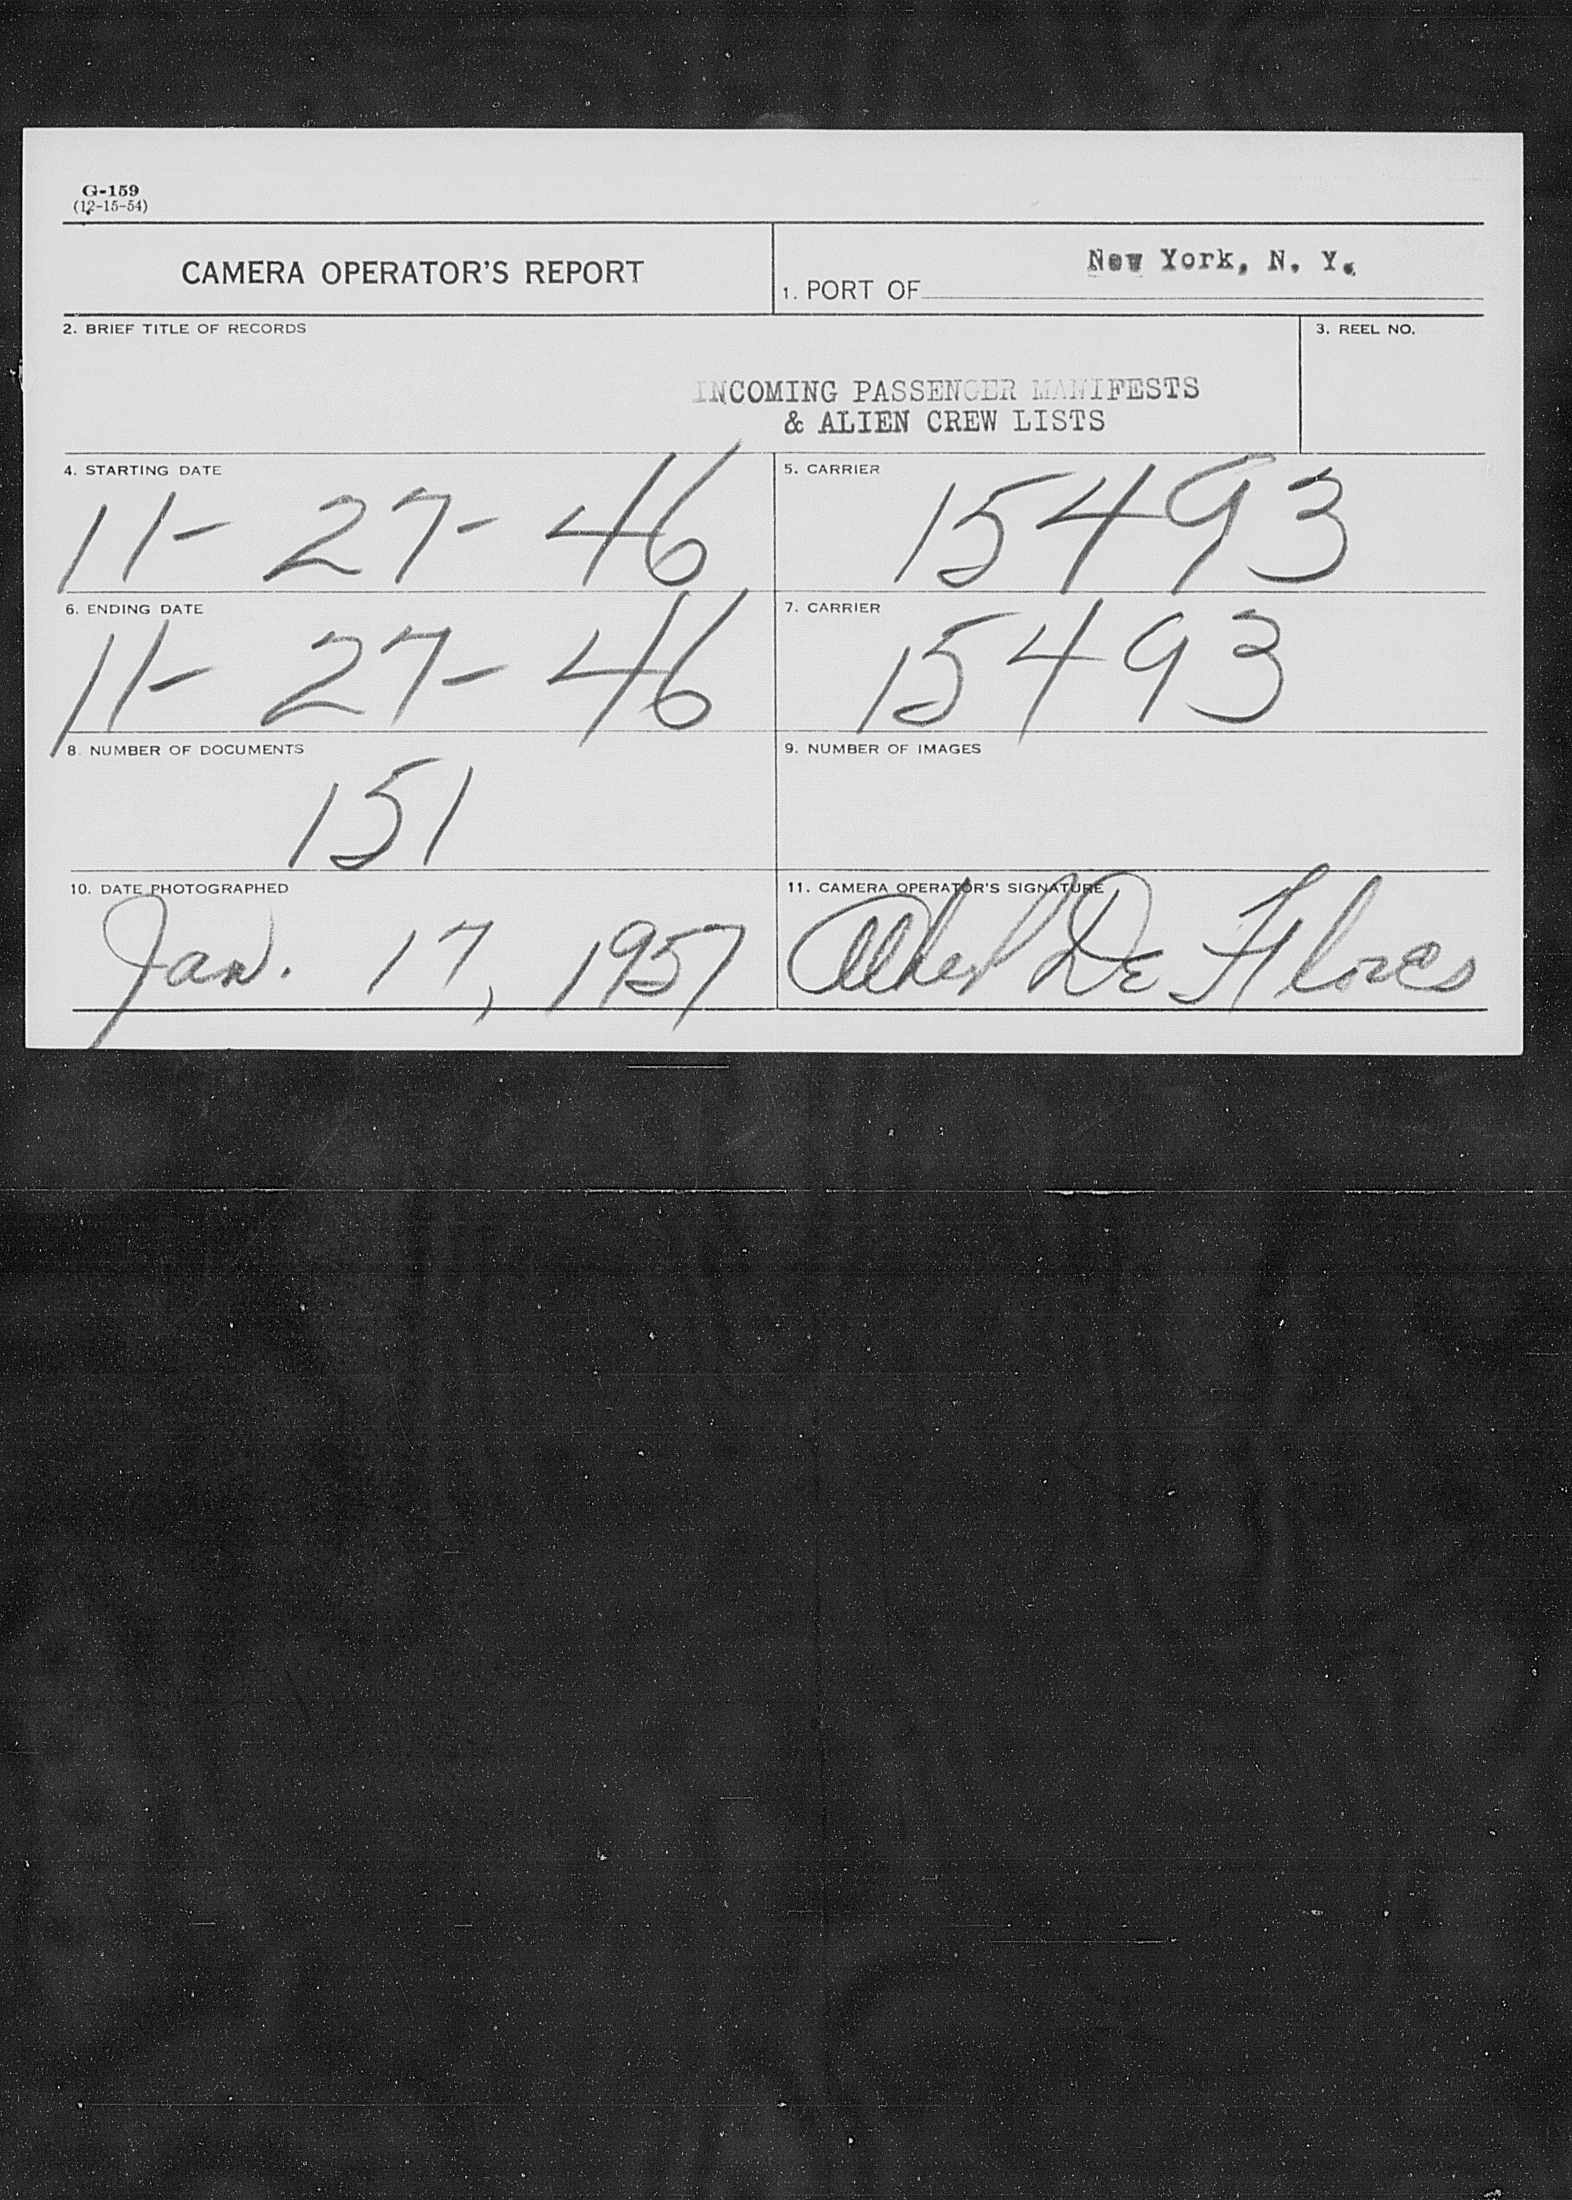 G-159
(12-15-54)
CAMERA OPERATOR'S REPORT
1. PORT OF New York, N. Y.
2. BRIEF TITLE OF RECORDS
3. REEL NO.
INCOMING PASSENGER MANIFESTS
& ALIEN CREW LISTS
4. STARTING DATE
11- 27- 46
5. CARRIER
15493
6. ENDING DATE
11- 27- 46
7. CARRIER
15493
8. NUMBER OF DOCUMENTS
151
9. NUMBER OF IMAGES
10. DATE PHOTOGRAPHED
Jan. 17, 1957
11. CAMERA OPERATOR'S SIGNATURE
De Flores